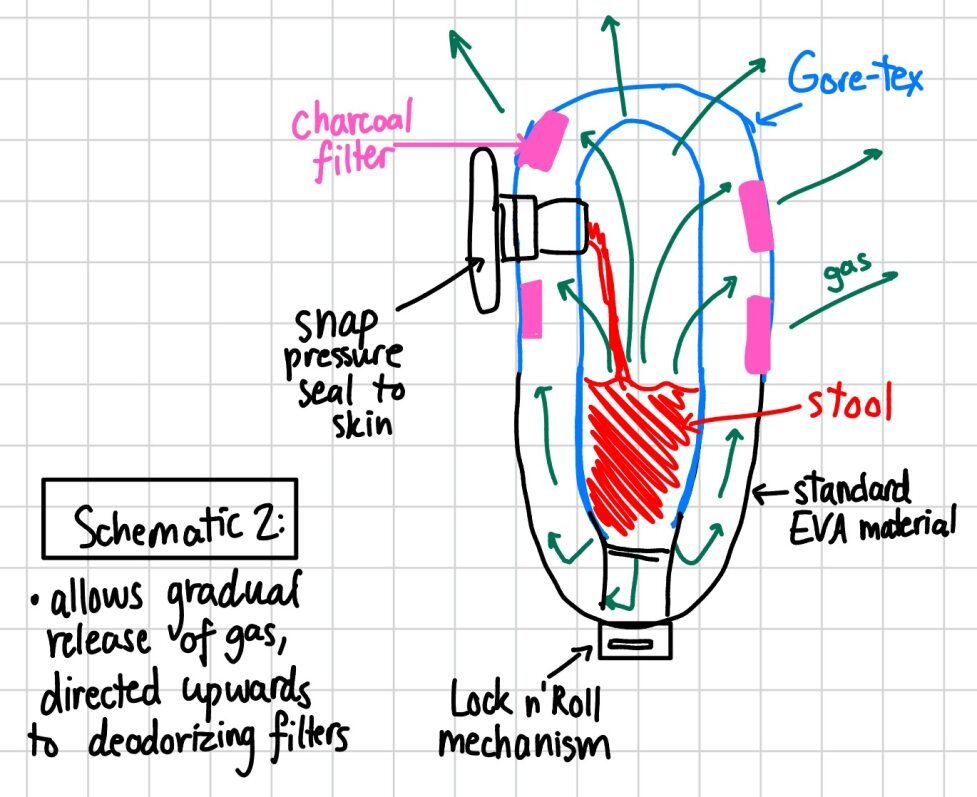 Gore-tex
charcoal
filter
gas
snap
pressure
seal to
skin
stool
standard
EVA material
Schematic 2:
• allows gradual
release of gas,
directed upwards
to deodorizing filters
Lock n' Roll
mechanism